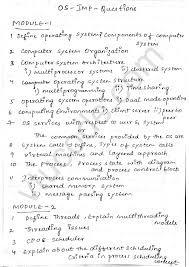 OS-Imp-Questions
MODULE-1
1 Define operating system? Components of computer
system
2 Computer System Organization
3 Computer System Architecture
i) multiprocessor systems ii) clustered system
4 Computer operating system structure
i) multiprogramming ii) Timesharing
5 operating system operations Dual mode operation
6 Computing Environments i) client server ii) peer to peer
7 OS services with respect to user & system?
The common services provided by the os are
8 System calls define, Types of system calls
9 Virtual machines and layered approach
10 The Process state with diagram
and process control block
communication
i) shared memory system
message passing system
MODULE-2
1 Define Threads, explain multithreading
models
2 Threading issues
3 CPU scheduler
4 explain about the different scheduling
criteria in process scheduling